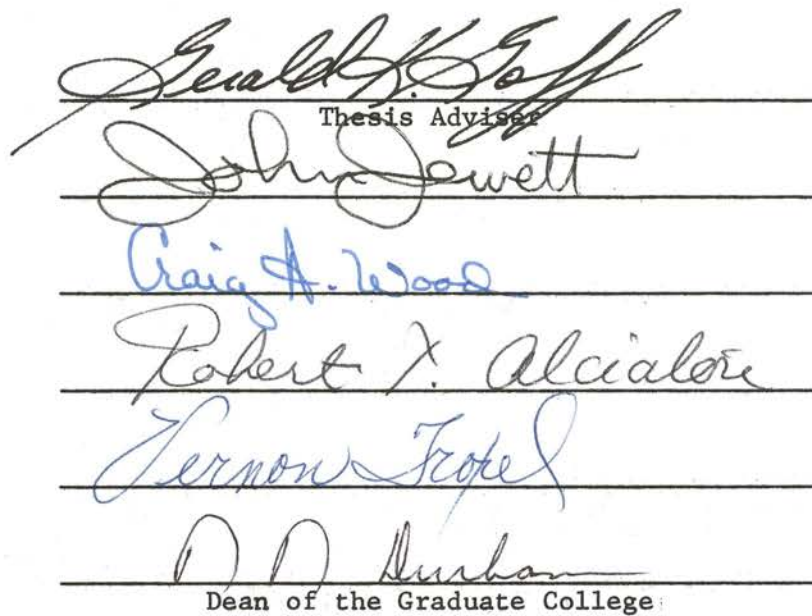 Gerald K. Goff
Thesis Adviser
John Jewett
Craig A. Wood
Robert
Vernon Troxel
D D Durham
Dean of the Graduate College